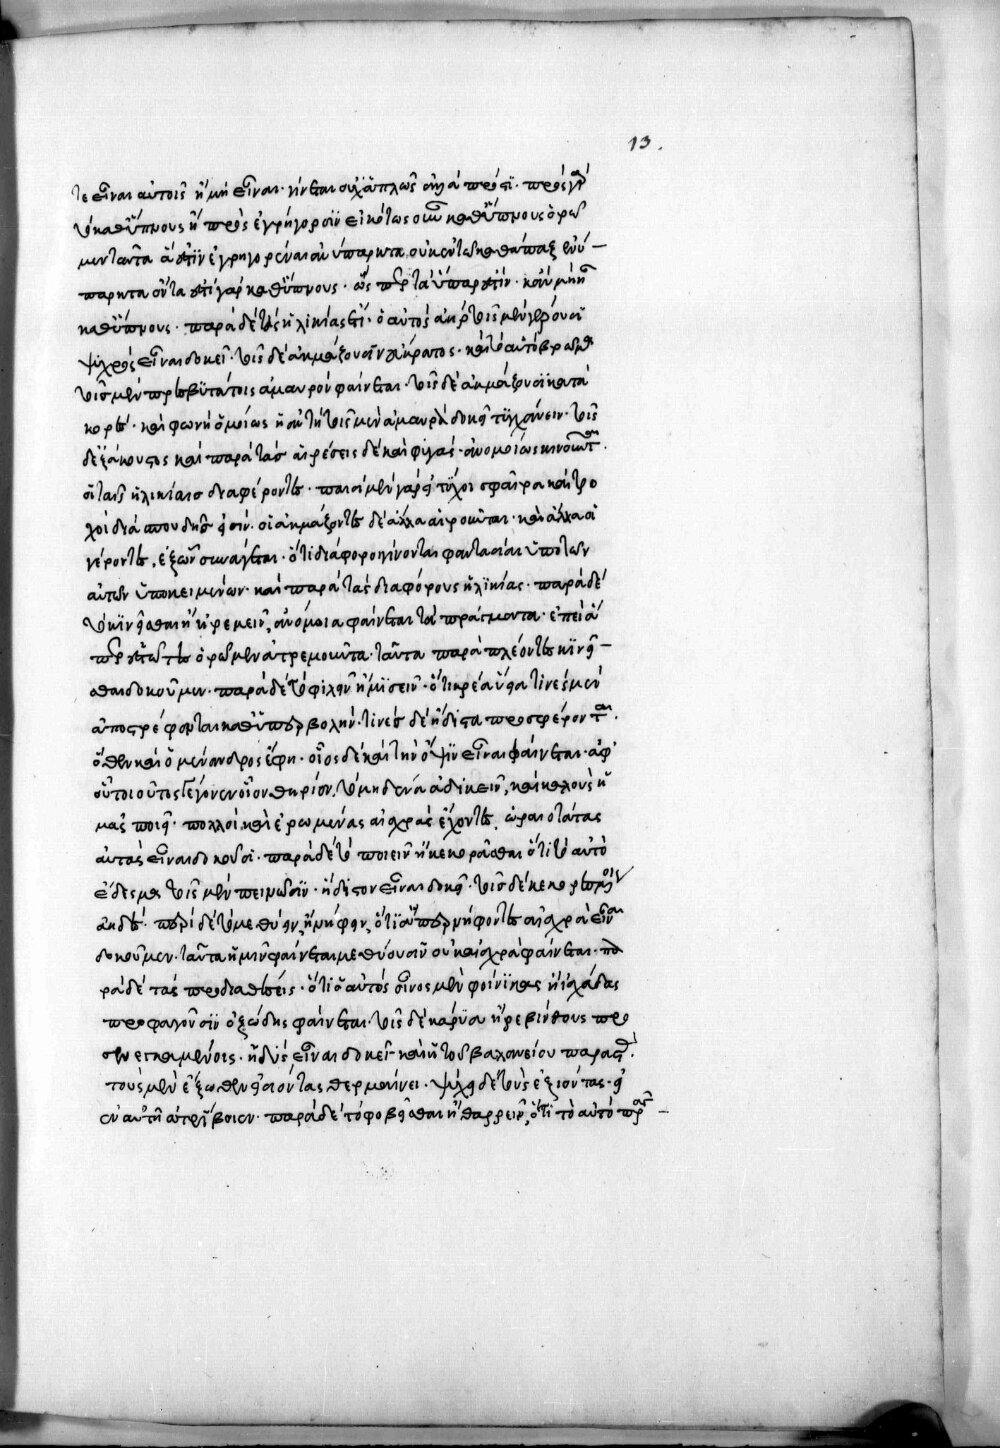 13.
τε εἶναι αὐτοῖς ἢ μὴ εἶναι. γίνεται οὐχ ἁπλῶς ἀλλὰ πρός τι. πρὸς γὰρ
τὸ καθ' ὕπνους ἢ πρὸς ἐγρήγορσιν εἰκότως οὖν καθ' ὕπνους ὁρῶ
μεν ταῦτα ἅ ἐστιν ἐγρηγορέναι ἀνύπαρκτα. οὐκ ἐν τῷ καθάπαξ ἀνύ—
παρκτα ὄντα ἔστι γὰρ καθ' ὕπνους. ὥσπερ τὰ ὕπαρ ἔστιν. κἂν μὴ ᾖ
καθ' ὕπνους. παρὰ δὲ τὰς ἡλικίας ἔτι. ὁ αὐτὸς ἀὴρ τοῖς μὲν γέρουσι
ψυχρὸς εἶναι δοκεῖ. τοῖς δὲ ἀκμάζουσιν εὔκρατος. καὶ τὸ αὐτὸ βρῶμα
τοῖς μὲν πρεσβυτάτοις ἀμαυρὸν φαίνεται. τοῖς δὲ ἀκμάζουσι κατα
κορές. καὶ φωνὴ ὁμοίως ἡ αὐτὴ τοῖς μὲν ἀμαυρὰ δοκεῖ τυγχάνειν. τοῖς
δ' ἐξάκουστος καὶ παρὰ τὰς αἱρέσεις δὲ καὶ φυγὰς. ἀνομοίως κινοῦνται.
οἱ ταῖς ἡλικίαις διαφέροντες. παισὶ μὲν γὰρ εἰ τύχοι σφαῖραι καὶ τρο
χοὶ διὰ σπουδῆς εἰσίν. οἱ ἀκμάζοντες δὲ ἄλλα αἱροῦνται. καὶ ἄλλα οἱ
γέροντες. ἐξ ὧν συνάγεται. ὅτι διάφοροι γίνονται φαντασίαι ὑπὸ τῶν
αὐτῶν ὑποκειμένων. καὶ παρὰ τὰς διαφόρους ἡλικίας. παρὰ δὲ
τὸ κινεῖσθαι ἢ ἠρεμεῖν, ἀνόμοια φαίνεται τὰ πράγματα. ἐπεὶ ἅ
περ ἑστῶτες ὁρῶμεν ἀτρεμοῦντα. ταῦτα παραπλέοντες κινεῖ—
σθαι δοκοῦμεν. παρὰ δὲ τὸ φιλεῖν ἢ μισεῖν. ὅτι κρέα ὕεια τινὲς μὲν
ἀποστρέφονται καθ' ὑπερβολήν. τινὲς δὲ ἥδιστα προσφέρονται.
ὅθεν καὶ ὁ μένανδρος ἔφη. οἷος δὲ καὶ τὴν ὄψιν εἶναι φαίνεται. ἀφ'
οὗ τοιοῦτος γέγονεν οἷον θηρίον. τὸ μηδὲν ἀδικεῖν, καὶ καλοὺς ἡ
μᾶς ποιεῖ. πολλοὶ καὶ ἐρωμένας αἰσχρὰς ἔχοντες, ὡραιοτάτας
αὐτὰς εἶναι δοκοῦσι. παρὰ δὲ τὸ πεινεῖν ἢ κεκορέσθαι ὅτι τὸ αὐτὸ
ἔδεσμα τοῖς μὲν πεινῶσιν. ἥδιστον εἶναι δοκεῖ. τοῖς δὲ κεκορεσμένοις
ἀηδές. παρὰ δὲ τὸ μεθύειν, ἢ νήφειν, ὅτι ἅπερ νήφοντες αἰσχρὰ εἶναι
δοκοῦμεν. ταῦτα ἡμῖν φαίνεται μεθύουσιν οὐκ αἰσχρὰ φαίνεται. πα
ρὰ δὲ τὰς προδιαθέσεις. ὅτι ὁ αὐτὸς οἶνος μὲν φοίνικας ἢ ἰσχάδας
προφαγοῦσιν ὀξώδης φαίνεται. τοῖς δὲ κάρυα ἢ ἐρεβίνθους προ
σενεγκαμένοις. ἡδὺς εἶναι δοκεῖ. καὶ ἡ τοῦ βαλανείου παραστὰς.
τοὺς μὲν ἔξωθεν εἰσιόντας θερμαίνει. ψύχει δὲ τοὺς ἐξιόντας. εἰ
ἐν αὐτῇ διατρίβοιεν. παρὰ δὲ τὸ φοβεῖσθαι ἢ θαρρεῖν, ὅτι τὸ αὐτὸ πρᾶγμα —